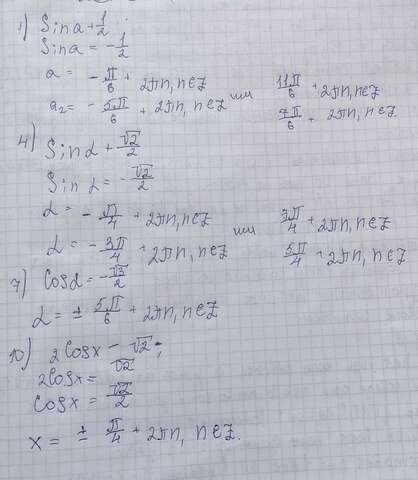 1) Sin a + 1/2
Sin a = - 1/2
a = - π/6 + 2πn, n∈Z или 11π/6 + 2πn, n∈Z
a₂ = - 5π/6 + 2πn, n∈Z 7π/6 + 2πn, n∈Z
4) Sin α + √2/2
Sin α = - √2/2
α = - π/4 + 2πn, n∈Z или 7π/4 + 2πn, n∈Z
α = - 3π/4 + 2πn, n∈Z 5π/4 + 2πn, n∈Z
7) Cos α = - √3/2
α = ± 5π/6 + 2πn, n∈Z
10) 2cos x - √2;
2cos x = √2
cos x = √2/2
x = ± π/4 + 2πn, n∈Z.